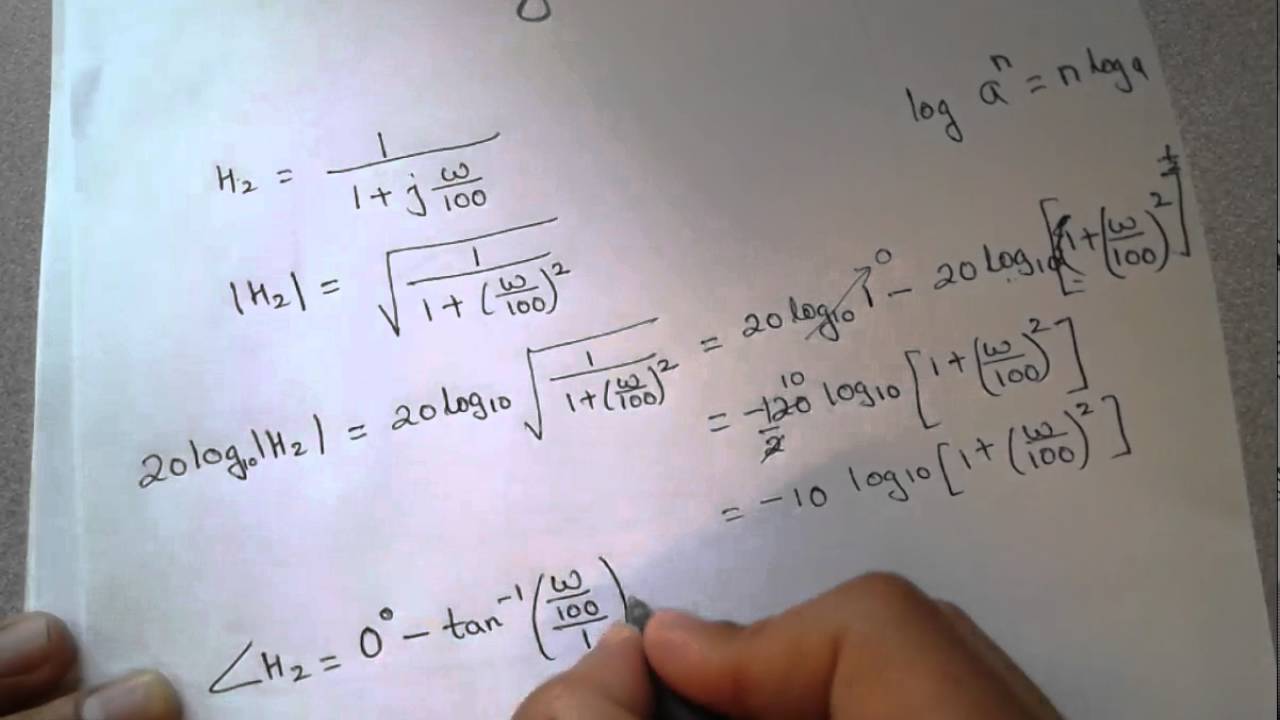 log aⁿ = n log a
H₂ = 1 / (1 + j ω/100)
|H₂| = √(1 / (1 + (ω/100)²))
20 log₁₀|H₂| = 20 log₁₀ √(1 / (1 + (ω/100)²)) = 20 log₁₀ 1 → 0 − 20 log₁₀ [1 + (ω/100)²]^½
= −120/2 10 log₁₀ [1 + (ω/100)²]
= −10 log₁₀ [1 + (ω/100)²]
∠H₂ = 0° − tan⁻¹ ((ω/100)/1)